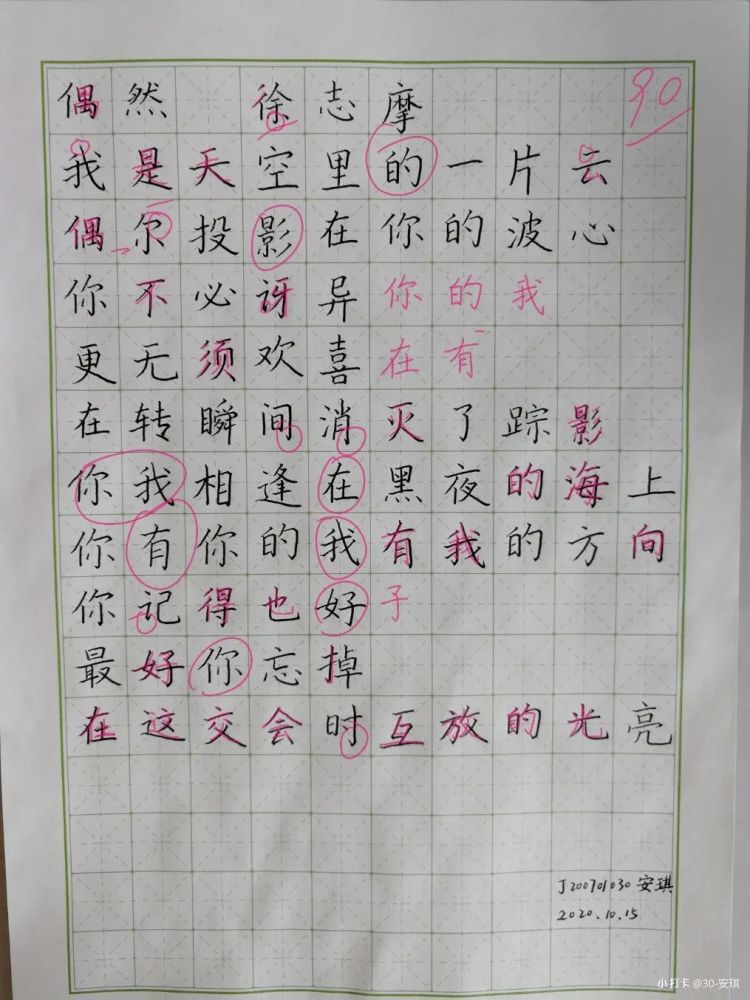 偶然 徐志摩 90
我是天空里的一片云
偶尔投影在你的波心
你不必讶异 你的我
更无须欢喜 在有
在转瞬间消灭了踪影
你我相逢在黑夜的海上
你有你的我有我的方向
你记得也好 子
最好你忘掉
在这交会时互放的光亮
J200701030 安琪
2020.10.15
小打卡 @30-安琪